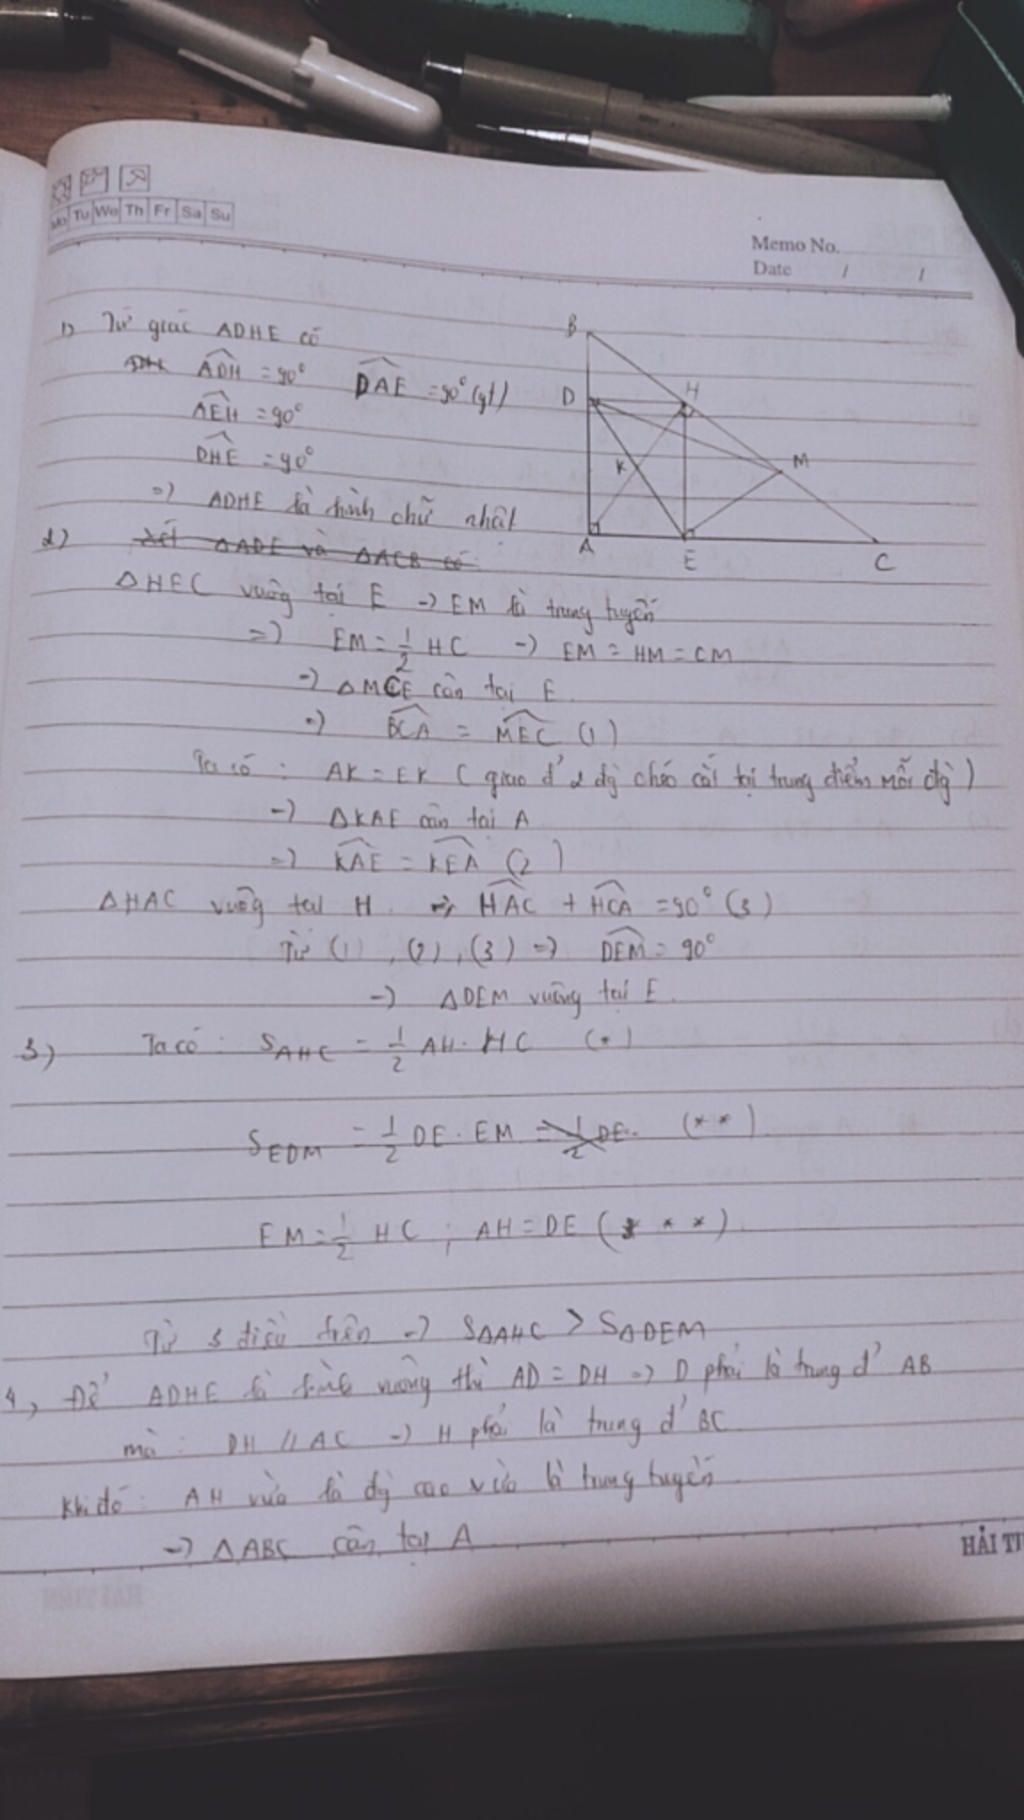 Mo Tu We Th Fr Sa Su
Memo No.
Date / /
1) Tứ giác ADHE có
ADH = 90° DAE = 90° (gt)
AEH = 90°
DHE = 90°
=> ADHE là hình chữ nhật
2) Xét ΔADE và ΔACB có
ΔHEC vuông tại E -> EM là trung tuyến
=> EM = 1/2 HC -> EM = HM = CM
-> ΔMCE cân tại E
=> BCA = MEC (1)
Ta có : AK = EK ( giao đ' 2 đg chéo cắt tại trung điểm mỗi đg )
-> ΔKAE cân tại A
=> KAE = KEA (2)
ΔHAC vuông tại H => HAC + HCA = 90° (3)
Từ (1), (2), (3) => DEM = 90°
-> ΔDEM vuông tại E.
3) Ta có : S AHC = 1/2 AH . HC (*)
S EDM = 1/2 DE . EM = 1/2 DE. (* *)
EM = 1/2 HC ; AH = DE (* * *)
Từ 3 điều trên -> SΔAHC > SΔDEM
4, Để ADHE là hình vuông thì AD = DH => D phải là trung đ' AB
mà : DH // AC -> H phải là trung đ' BC
Khi đó : AH vừa là đg cao vừa là trung tuyến
-> ΔABC cân tại A
B
D
H
K
M
A
E
C
HẢI TI